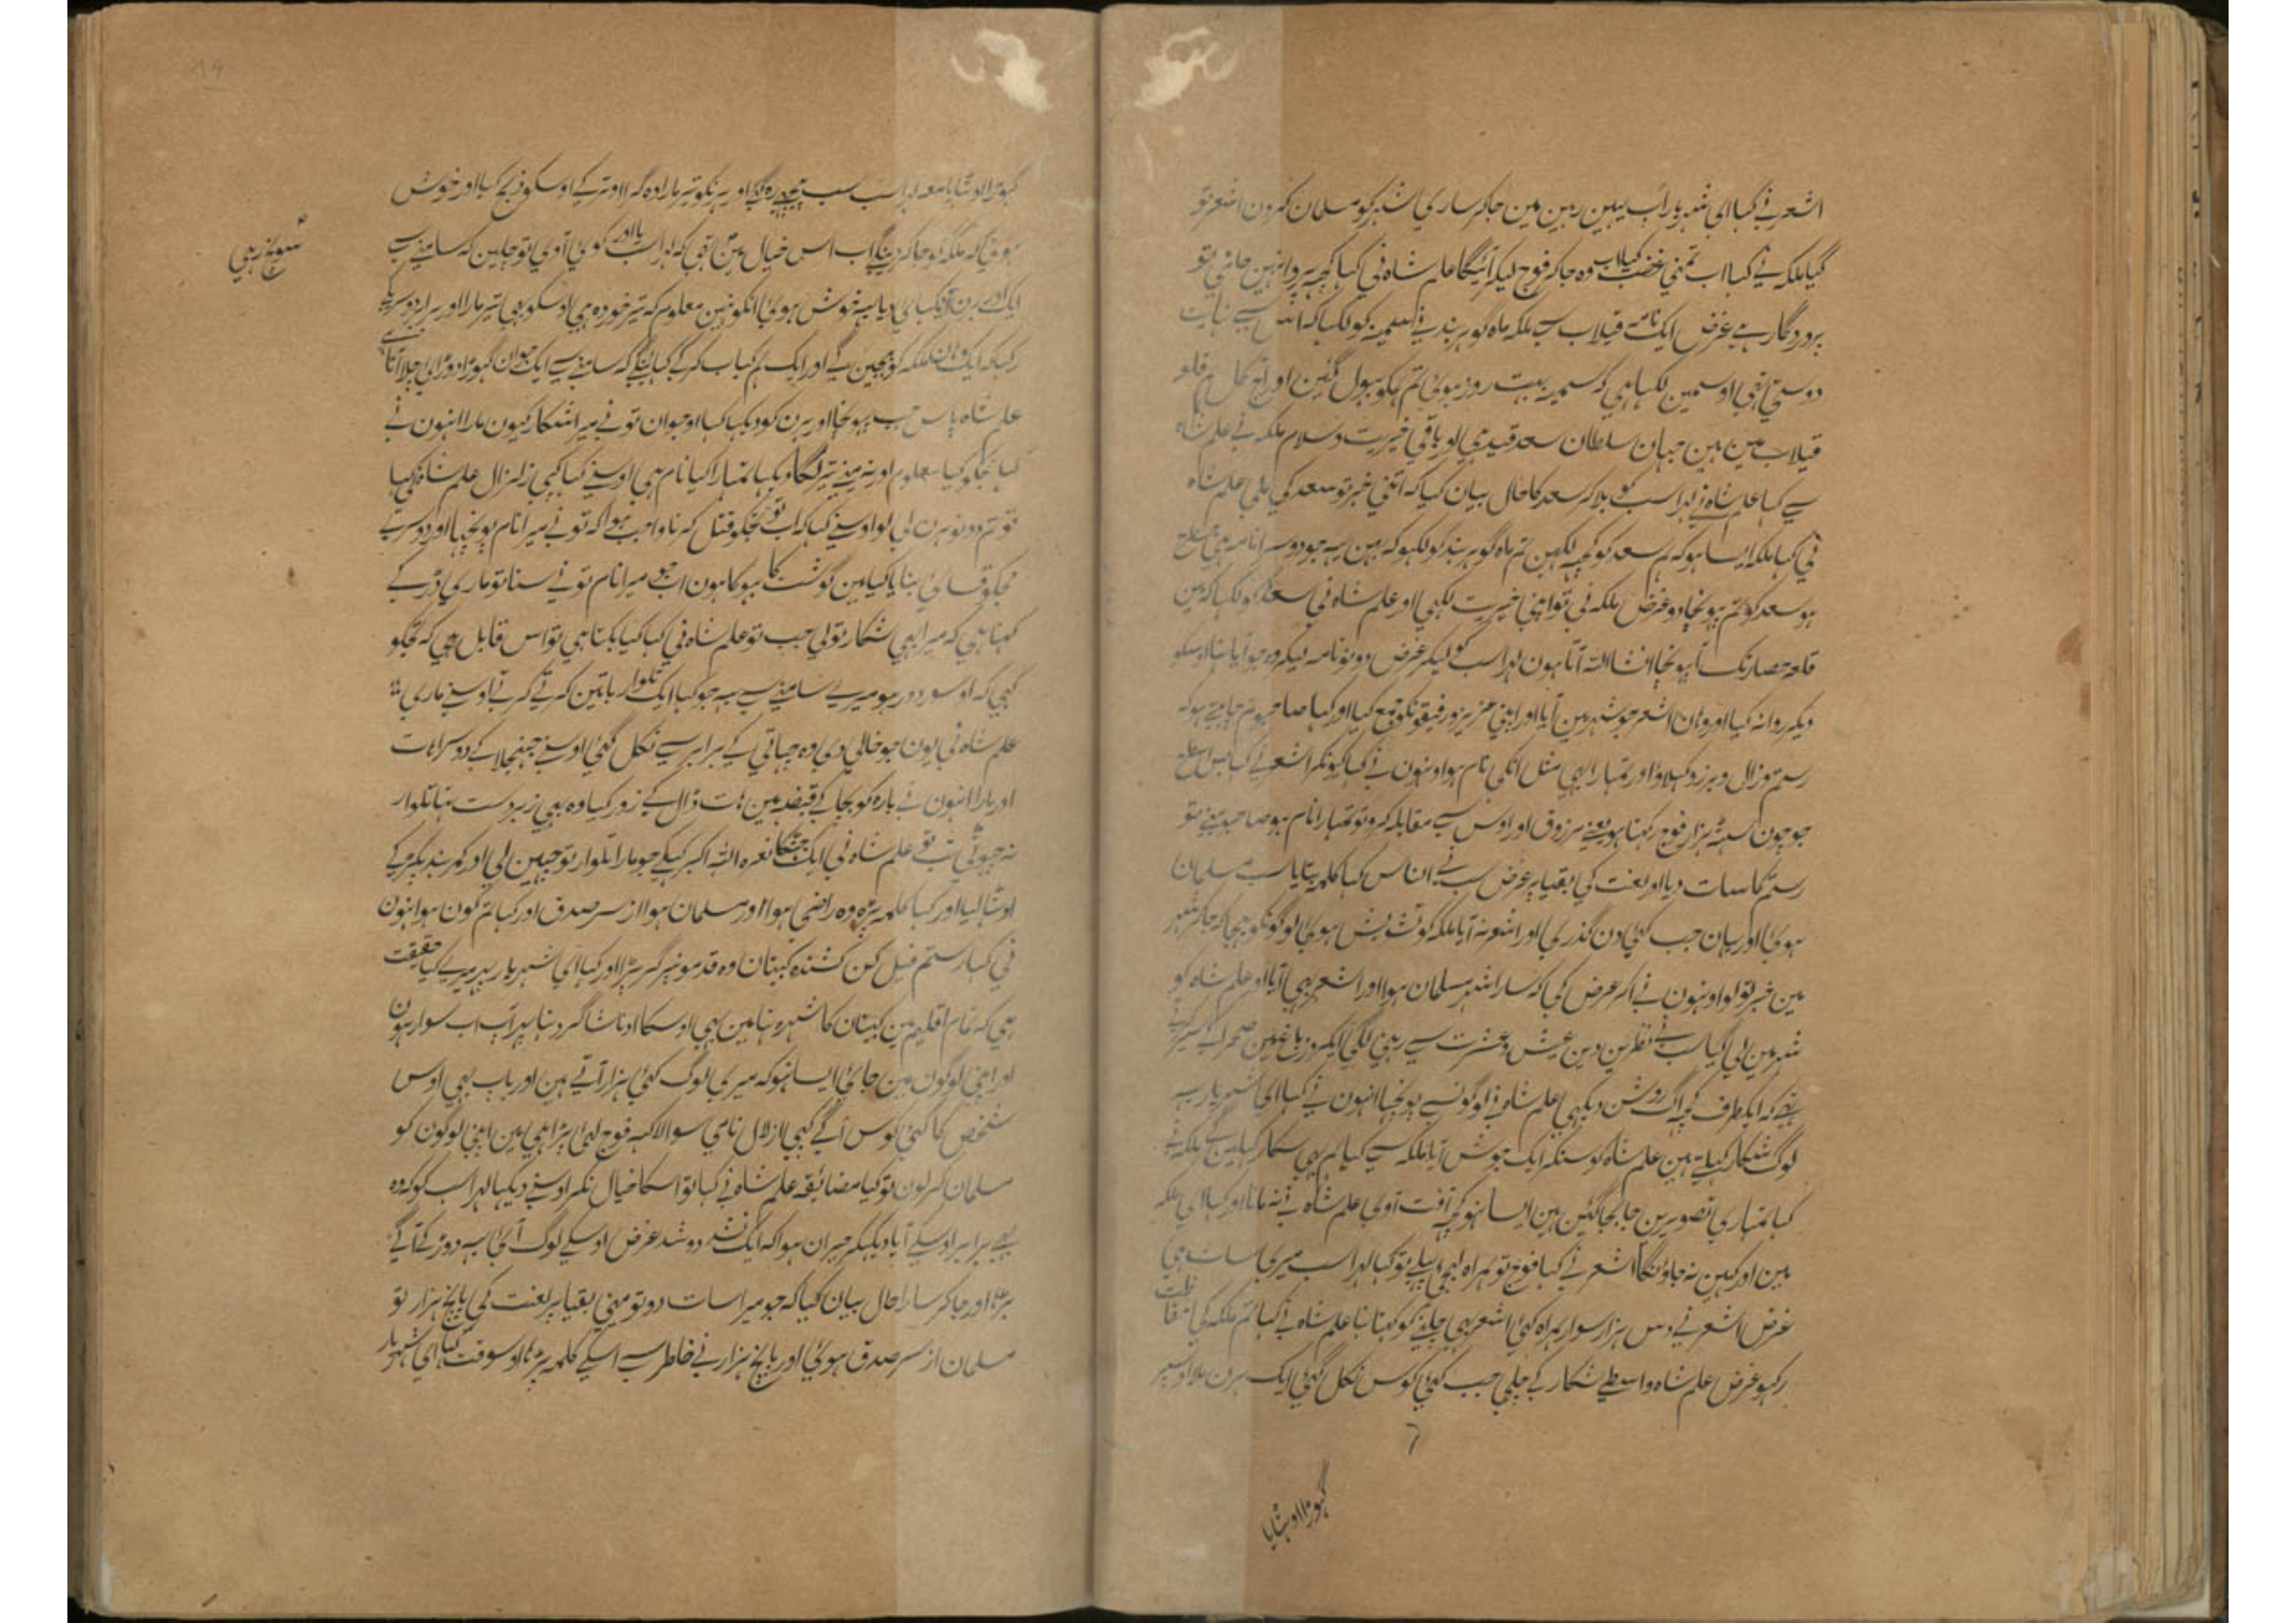 اشعر نے کہا ای شہریار آپ یہین رہین مین جا کر ساری شہر کو مسلمان کرون اشعر تو
گیا ملکہ نے کہا اب تمنی غضب کیا اب وہ جا کہ فوج لیکر آئیگا علم شاہ نی کہا کچہہ پروا نہین حامی تو
پروردگار ہے غرض ایک نامہ قیلاب سے ملکہ ماہ گوہر بند نے سمیہ کو لکہا کہ اس سے نہایت
دوستی تہی اوسمین لکہا ہی کہ سمیہ بہت روز ہوئی تم ہمکو بہول گئین اور آج کل ہم قلعہ
قیلاب مین ہین جہان سلطان سعد قید ہی اور باقی خیریت وسلام ملکہ نے علم شاہ
سے کہا علم شاہ نے لہراسب کو بلا کر سعد کا حال بیان کیا کہ اتنی خبر تو سعد کی ملی علم شاہ
نی کہا ملکہ ایسا ہو کہ ہم سعد کو کچہہ لکہین تم ماہ گوہر بند کو لکہو کہ بہن یہ جو دوسرا نامہ ہی
ہو سعد کو تم پہونچا دو غرض ملکہ نی تو اپنی خیریت لکہی اور علم شاہ نی سعد کو لکہا کہ مین
قلعہ حصار تک آ پہونچا انشا اللہ آتا ہون لہراسب کو لیکر غرض دونو نامہ لیکر وہ جو آیا تہا اوسکو
دیکر روانہ کیا اور وہان اشعر جو شہر مین آیا اور اپنی عزیز و رفیقونکو جمع کیا اور کہا صاحبو تم چاہتے ہو کہ
رستم وزال و برزو کہلاؤ اور تمہارا بہی مثل انکی نام ہو اونہون نے کہا کیونکر اشعر نے کہا بس اسطرح
جو چون ہزار فوج رکہتا ہو یعنے مرزوق اور اوس سے مقابلہ کرو تو تمہارا نام ہو صاحبو مینے تو
رستم کا سات دیا اور لعنت کی بقیا پر غرض سب نے ان اس کہا کلمہ بتایا سب مسلمان
ہوئی اور یہان جب کئی دن گذری اور اشعر نہ آیا ملکہ کو تشویش ہوئی لوگونکو بہیجا کہ جا کر شہر
مین خبر تو لو اونہون نے آکر عرض کی کہ سارا شہر مسلمان ہوا اور اشعر بہی آیا اور علم شاہ کو
شہر مین لی گیا سب نے نظرین دین عیش وعشرت سے رہنی لگی ایکروز باغ مین صحرا کے سیر کرتے
تہے کہ ایکطرف کچہہ آگ روشن دیکہی علم شاہ نے لوگونسے پونچہا انہون نے کہا ای شہریار یہ
لوگ شکار کہیلتے ہین علم شاہ کو سنکر ایک جوش آیا ملکہ سے کہا ہم بہی شکار کہیلینگے ملکہ نے
کہا تمہاری تصویرین جابجا گئین ہین ایسا نہو کچہہ آفت آوی علم شاہ نے نہ مانا اور کہا ای ملکہ
مین اور کہین نہ جاونگا اشعر نے کہا فوج تو ہمراہ لیجیے تو کہا لہراسب میری سات ہی
غرض اشعر نے دس ہزار سوار ہمراہ کئی اشعر بہی چلنے کو کہتا تہا علم شاہ نے کہا تم ملکہ کی حفاظت
رکہو غرض علم شاہ واسطے شکار کے چلی جب کئی کوس نکل گئی ایک ہرن ملا اوسپر
گہوڑا اوٹہایا
گہوڑا اوٹہایا معہ لہراسب سب پیچہے رہ گئی اور ہرنکو تیر مارا وہ گرا اوتر کے اوسکو ذبح کیا اور خوش
ہوئی کہ ملکہ کو جا کر دینگے اب اس خیال مین تہی کہ لہراسب یا اور کوئی آوی تو چلین کہ سامنے سے
ایک اور ہرن دکہائی دیا یہ خوش ہوئی انکو نہین معلوم کہ تیر خوردہ ہی اوسکو بہی تیر مارا اور برابر دوسریکے
رکہا کہ ایک وہان ملکہ کو بہیجین گے اور ایک ہم کباب کر کے کہائینگے کہ سامنے سے ایک جوان گہوڑا دوڑائی چلا آتا ہے
علم شاہ پاس جب پہونچا اور ہرن کو دیکہا کہا او جوان تو نے میرا شکار کیون مارا انہون نے
کہا ہمکو کیا معلوم اور نہ مینے تیر لگا دیکہا تمہارا کیا نام ہی اوسنے کہا کہی زلزال علم شاہ نے کہا
تو تم دونو ہرن لی لو اوسنے کہا کہ اب تو تجکو قتل کرنا واجب ہوا کہ تو نے میرا نام پونچہا اور دوسرے
مجکو قسائی بنایا کیا مین گوشت کا بہوکا ہون اب جو میرا نام تو نے سنا تو ماری ڈر کے
کہتا ہی کہ میرا بہی شکار تو لی جب تو علم شاہ نی کہا کیا بکتا ہی تو اس قابل ہی کہ تجکو
کہی کہ اوسر دور ہو میرے سامنے سے یہ جو کہا ایک تلوار باتین کرتے کرتے اوسنے ماری
علم شاہ نی یون جو خالی دی وہ چہاتی کے برابر سے نکل گئی اوسنے جہنجلا کے دوسرا ہات
اور مارا انہون نے بازہ کو بچا کے قبضہ مین ہات ڈال کے زور کیا وہ بہی زبردست تہا تلوار
نہ چہوٹی تب تو علم شاہ نی ایک جہٹکا نعرہ اللہ اکبر کہکے جو مارا تلوار تو چہین لی اور کمر بند پکڑ کے
اوٹہا لیا اور کہا کلمہ پڑہ وہ راضی ہوا اور مسلمان ہوا از سر صدق اور کہا تم کون ہو انہون
نی کہا رستم فیل کن کشندہ کپتان وہ قدمونپر گر پڑا اور کہا ای شہریار پدر میرے کیا حقیقت
ہی کہ تمام اقلیم مین کپتان کا شہرہ تہا مین بہی اوسکا ادنا شاگرد تہا پر آپ اب سوار ہون
اور اپنی لوگون مین جائی ایسا نہو کہ میری لوگ کئی ہزار آتے ہین اور باپ بہی اوس
شخص کا کئی کوس آگے کہی ازلال نامی سوا لاکہہ فوج لئی پڑا ہی مین اپنی لوگون کو
مسلمان کر لون تو کیا مضائقہ علم شاہ نے کہا تو اسکا خیال نکر اوسنے دیکہا لہراسب کو کہ وہ
بہی برابر اوسکے آیا دیکہکر حیران ہوا کہ ایک نشد دو شد غرض اوسکے لوگ آئی یہ دوڑ کے آگے
بڑہا اور جا کر سارا حال بیان کیا کہ جو میرا سات دو تو مینی بقیا پر لعنت کی پانچ ہزار تو
مسلمان از سر صدق ہوئی اور پانچ ہزار نے خاطر سے اسکے کلمہ پڑہا اوسوقت کہا ای شہریار